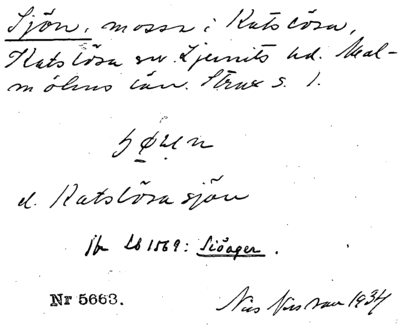 Sjön, mosse i Katslösa,
Katslösa sn Ljunits hd. Mal-
möhus län. Strax s. l.
el. Katslösasjön
Jfr LS 1569: Siöager.
Nr 5663. 1934